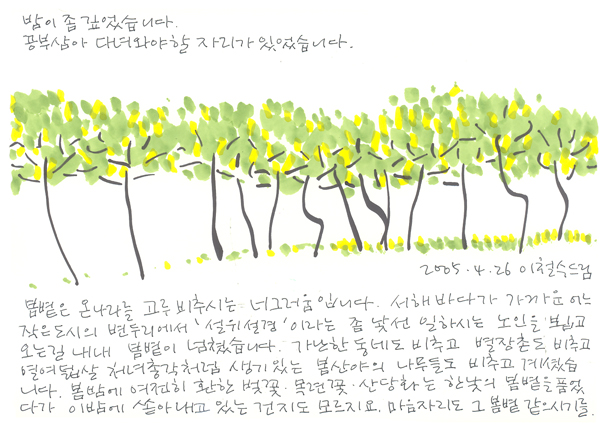 밤이 좀 깊었습니다.
공부삼아 다녀와야할 자리가 있었습니다.
2005.4.26 이철수드림
봄볕은 온나라를 고루 비추시는 너그러움입니다. 서해바다가 가까운 어느
작은도시의 변두리에서 '설위설경'이라는 좀 낯선 일하시는 노인을 뵙고
오는길 내내 봄볕이 넘쳤습니다. 가난한 동네도 비추고 별장촌도 비추고
열여덟살 처녀총각처럼 생기있는 봄산야의 나무들도 비추고 계셨습
니다. 봄밤에 여전히 환한 벚꽃·목련꽃·산당화는 한낮의 봄볕을 품었
다가 이밤에 쏟아내고 있는 건지도 모르지요. 마음자리도 그 봄볕 같으시기를.